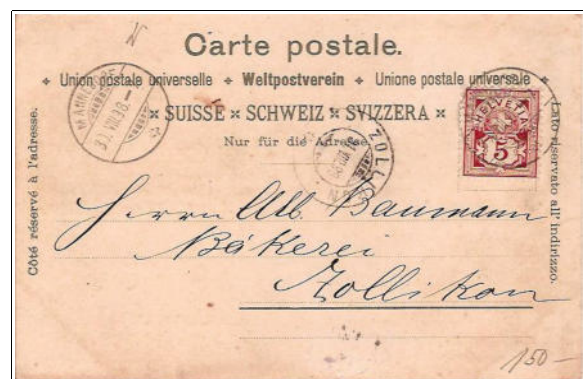 Carte postale.
Union postale universelle Weltpostverein Unione postale universale
SUISSE × SCHWEIZ × SVIZZERA
Nur für die Adresse.
Côté réservé à l'adresse.
Lato riservato all' indirizzo.
HELVETIA
5
ZOLLI
Herrn Alb. Baumann
Bäkerei
Zollikon
150-